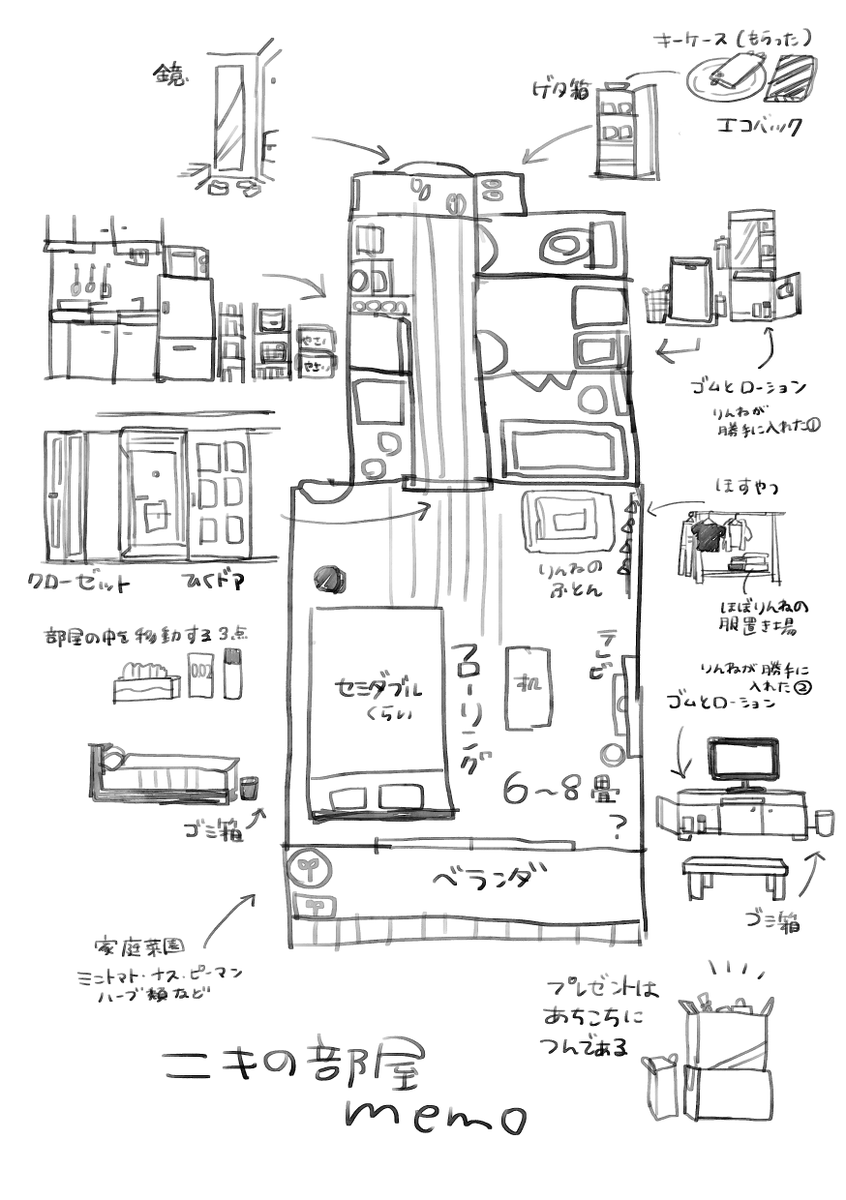 鏡
キーケース(もらった)
ゲタ箱
エコバック
やさい
やさい
ゴムとローション
りんねが
勝手に入れた①
クローゼット
ひくドア
ほすやつ
りんねの
ふとん
ほぼりんねの
服置き場
部屋の中を移動する3点
0.02
セミダブル
くらい
フローリング
机
テレビ
6〜8畳
?
りんねが勝手に
入れた②
ゴムとローション
ゴミ箱
ゴミ箱
ベランダ
家庭菜園
ミニトマト・ナス・ピーマン
ハーブ類など
プレゼントは
あちこちに
つんである
ニキの部屋
memo